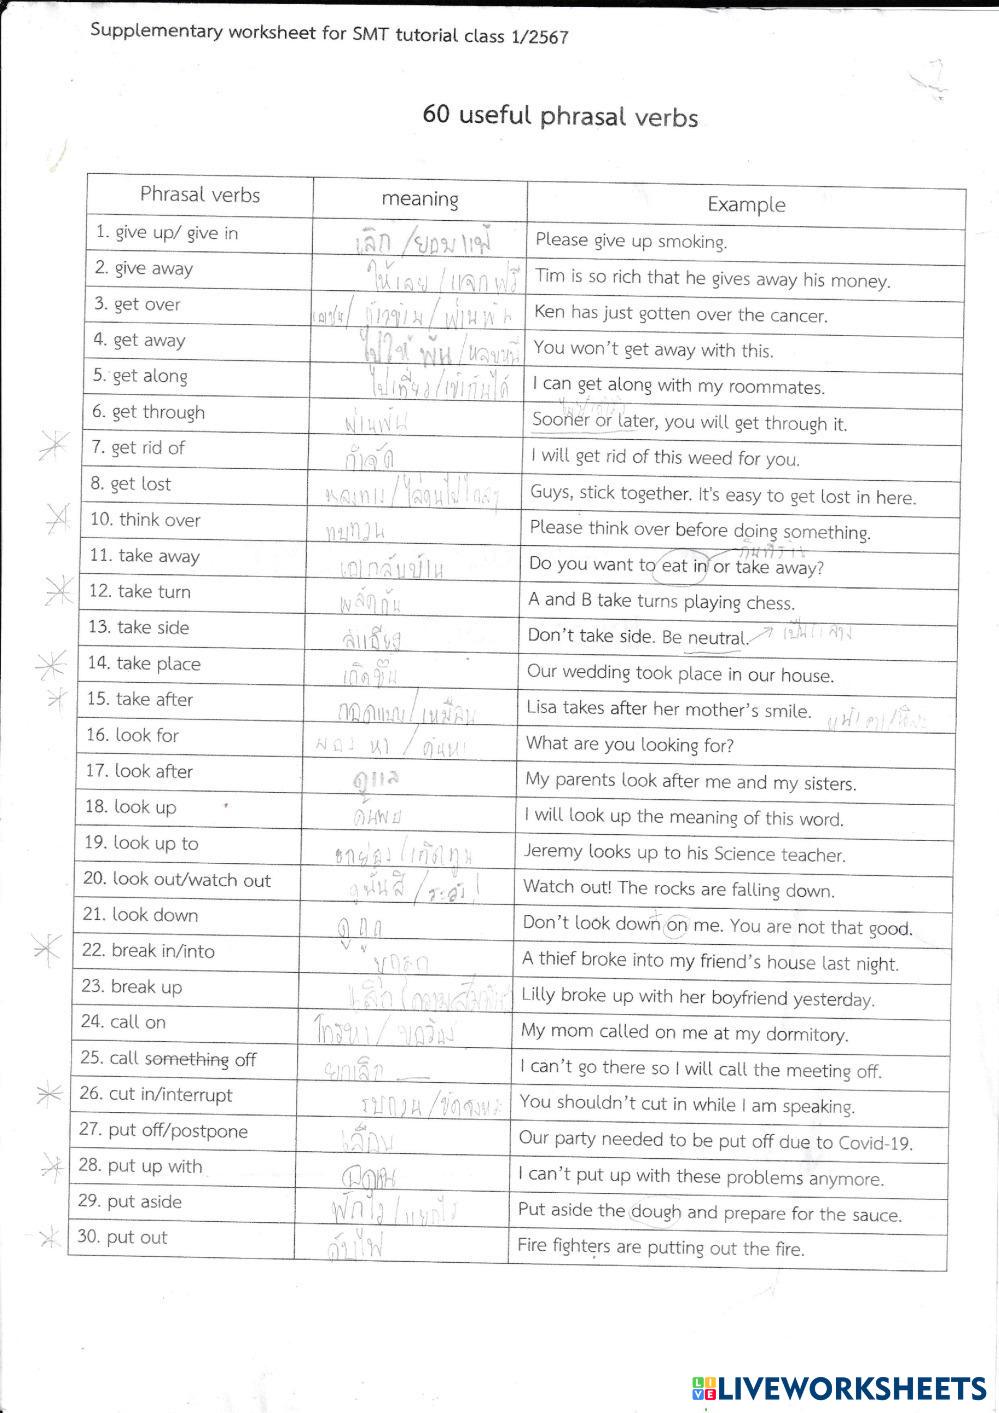 Supplementary worksheet for SMT tutorial class 1/2567
60 useful phrasal verbs
Phrasal verbs meaning Example
1. give up/ give in เลิก /ยอมแพ้ Please give up smoking.
2. give away ให้เลย / แจกฟรี Tim is so rich that he gives away his money.
3. get over / ก้าวข้าม / ผ่านพ้น Ken has just gotten over the cancer.
4. get away ไปให้พ้น /หลบหนี You won't get away with this.
5. get along ไปเที่ยว/เข้ากันได้ I can get along with my roommates.
6. get through ผ่านพ้น Sooner or later, you will get through it.
7. get rid of กำจัด I will get rid of this weed for you.
8. get lost หลงทาง/ไล่คนไปไกลๆ Guys, stick together. It's easy to get lost in here.
10. think over ทบทวน Please think over before doing something.
กินที่ร้าน
11. take away เอากลับบ้าน Do you want to eat in or take away?
12. take turn ผลัดกัน A and B take turns playing chess.
13. take side ลำเอียง Don't take side. Be neutral. เป็นกลาง
14. take place เกิดขึ้น Our wedding took place in our house.
15. take after ถอดแบบ/เหมือน Lisa takes after her mother's smile.
16. look for มองหา / ค้นหา What are you looking for?
17. look after ดูแล My parents look after me and my sisters.
18. look up ค้นพบ I will look up the meaning of this word.
19. look up to ยกย่อง/เทิดทูน Jeremy looks up to his Science teacher.
20. look out/watch out ดูนั่นสิ /ระวัง! Watch out! The rocks are falling down.
21. look down ดูถูก Don't look down on me. You are not that good.
22. break in/into บุกรุก A thief broke into my friend's house last night.
23. break up เลิก (ความสัมพันธ์) Lilly broke up with her boyfriend yesterday.
24. call on โทรหา/ ขอร้อง My mom called on me at my dormitory.
25. call something off ยกเลิก I can't go there so I will call the meeting off.
26. cut in/interrupt รบกวน /ขัดจังหวะ You shouldn't cut in while I am speaking.
27. put off/postpone เลื่อน Our party needed to be put off due to Covid-19.
28. put up with อดทน I can't put up with these problems anymore.
29. put aside พักไว้/แยกไว้ Put aside the dough and prepare for the sauce.
30. put out ดับไฟ Fire fighters are putting out the fire.
LIVE LIVEWORKSHEETS